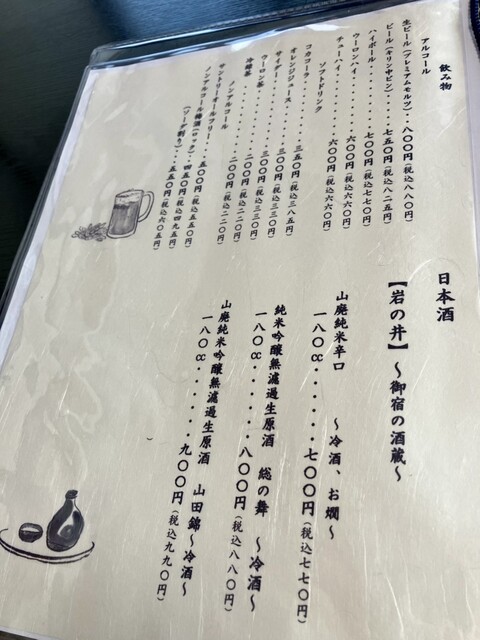 飲み物
アルコール
生ビール(プレミアムモルツ)・・八〇〇円(税込八八〇円)
ビール(キリン中ビン)・・・七五〇円(税込八二五円)
ハイボール・・・・・・七〇〇円(税込七七〇円)
ウーロンハイ・・・・・六〇〇円(税込六六〇円)
チューハイ・・・・・・六〇〇円(税込六六〇円)
ソフトドリンク
コカコーラ・・・・・・三五〇円(税込三八五円)
オレンジジュース・・・・三〇〇円(税込三三〇円)
サイダー・・・・・・・三〇〇円(税込三三〇円)
ウーロン茶・・・・・・二〇〇円(税込二二〇円)
冷緑茶・・・・・・・・二〇〇円(税込二二〇円)
ノンアルコール
サントリーオールフリー・・・五〇〇円(税込五五〇円)
ノンアルコール梅酒(ロック)・・四五〇円(税込四九五円)
(ソーダ割り)・・・五五〇円(税込六〇五円)
日本酒
【岩の井】~御宿の酒蔵~
山廃純米辛口 ~冷酒、お燗~
一八〇cc・・・・・・七〇〇円(税込七七〇円)
純米吟醸無濾過生原酒 総の舞 ~冷酒~
一八〇cc・・・・・・八〇〇円(税込八八〇円)
山廃純米吟醸無濾過生原酒 山田錦~冷酒~
一八〇cc・・・・・・九〇〇円(税込九九〇円)